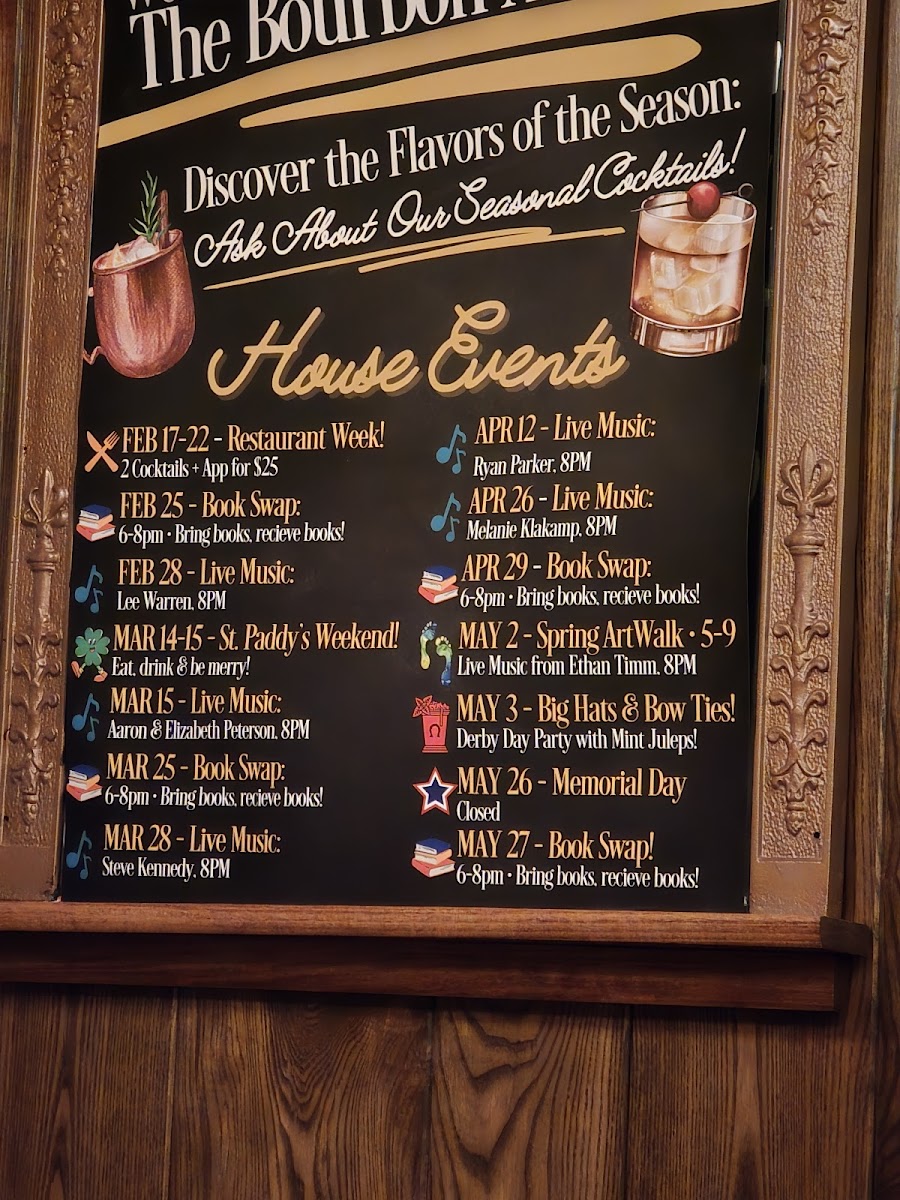 The Bourbon
Discover the Flavors of the Season:
Ask About Our Seasonal Cocktails!
House Events
FEB 17-22 - Restaurant Week!
2 Cocktails + App for $25
FEB 25 - Book Swap:
6-8pm • Bring books, recieve books!
FEB 28 - Live Music:
Lee Warren, 8PM
MAR 14-15 - St. Paddy's Weekend!
Eat, drink & be merry!
MAR 15 - Live Music:
Aaron & Elizabeth Peterson, 8PM
MAR 25 - Book Swap:
6-8pm • Bring books, recieve books!
MAR 28 - Live Music:
Steve Kennedy, 8PM
APR 12 - Live Music:
Ryan Parker, 8PM
APR 26 - Live Music:
Melanie Klakamp, 8PM
APR 29 - Book Swap:
6-8pm • Bring books, recieve books!
MAY 2 - Spring ArtWalk • 5-9
Live Music from Ethan Timm, 8PM
MAY 3 - Big Hats & Bow Ties!
Derby Day Party with Mint Juleps!
MAY 26 - Memorial Day
Closed
MAY 27 - Book Swap!
6-8pm • Bring books, recieve books!